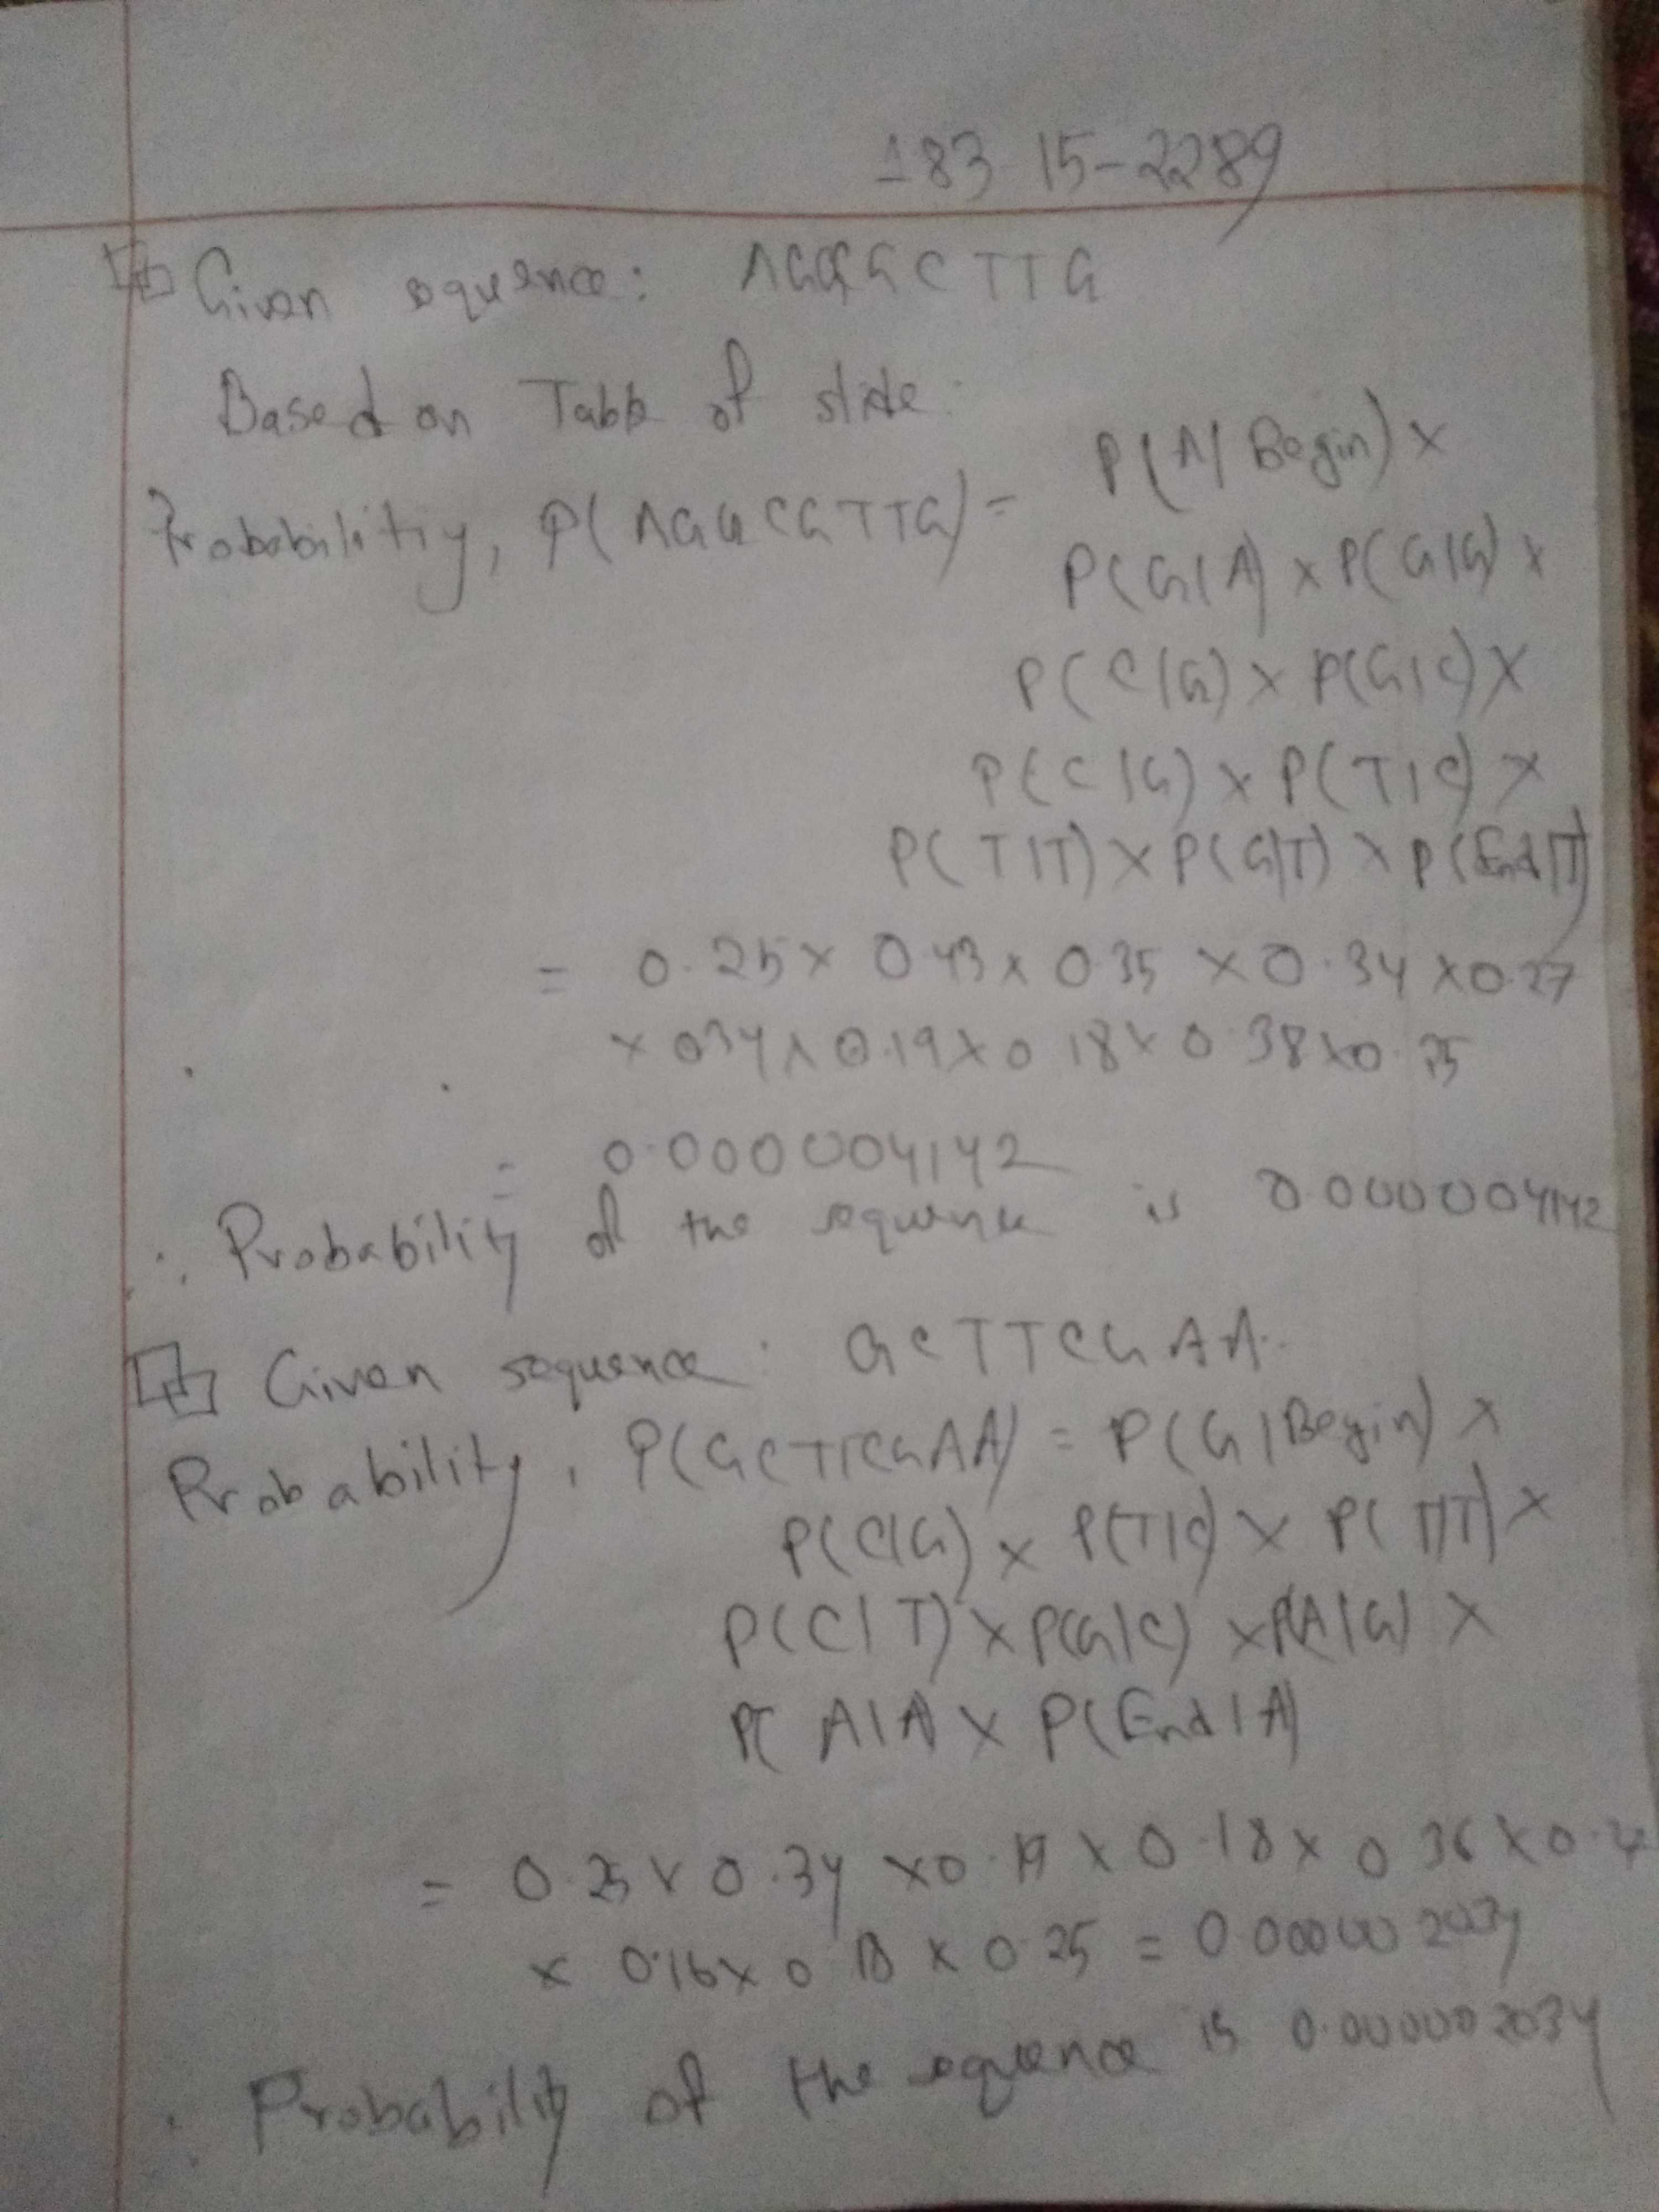 183 15-2289
Given sequence: AGGGCTTG
Based on Table of slide:
Probabilitiy, P(AGGCGTTG) = P(A|Begin) ×
P(G|A) × P(G|G) ×
P(C|G) × P(G|C) ×
P(C|G) × P(T|C) ×
P(T|T) × P(G|T) × P(End|T)
= 0.25 × 0.43 × 0.35 × 0.34 × 0.27
× 0.34 × 0.19 × 0.18 × 0.38 × 0.25
= 0.000004142
∴ Probability of the sequence is 0.000004142
Given sequence: GCTTCGAA.
Probability, P(GCTTCGAA) = P(G|Begin) ×
P(C|G) × P(T|C) × P(T|T) ×
P(C|T) × P(G|C) × P(A|G) ×
P( A|A) × P(End|A)
= 0.25 × 0.34 × 0.19 × 0.18 × 0.36 ×
× 0.16 × 0.18 × 0.25 = 0.000002034
∴ Probability of the sequence is 0.000002034